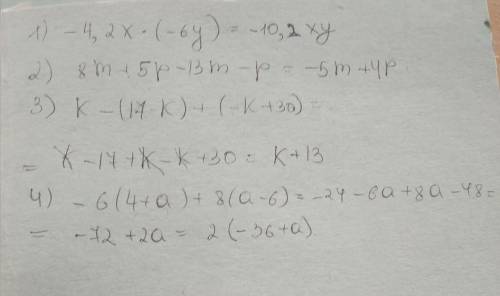 1) -4,2x · (-6y) = -10,2xy
2) 8m + 5p - 13m - p = -5m + 4p
3) K - (17 - K) + (-K + 30) =
= K - 17 + K - K + 30 = K + 13
4) -6(4+a) + 8(a-6) = -24 - 6a + 8a - 48 =
= -72 + 2a = 2(-36+a)